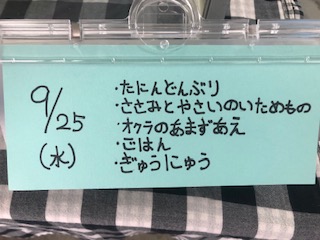 9/25
(水)
・たにんどんぶり
・ささみとやさいのいためもの
・オクラのあまずあえ
・ごはん
・ぎゅうにゅう